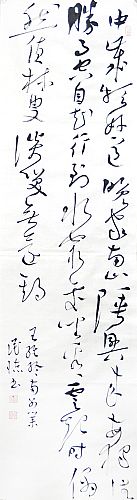 中歲頗好道晚家南山陲興來每獨往
勝事空自知行到水窮處坐看雲起時偶
然值林叟談笑無還期
王維終南別業
書